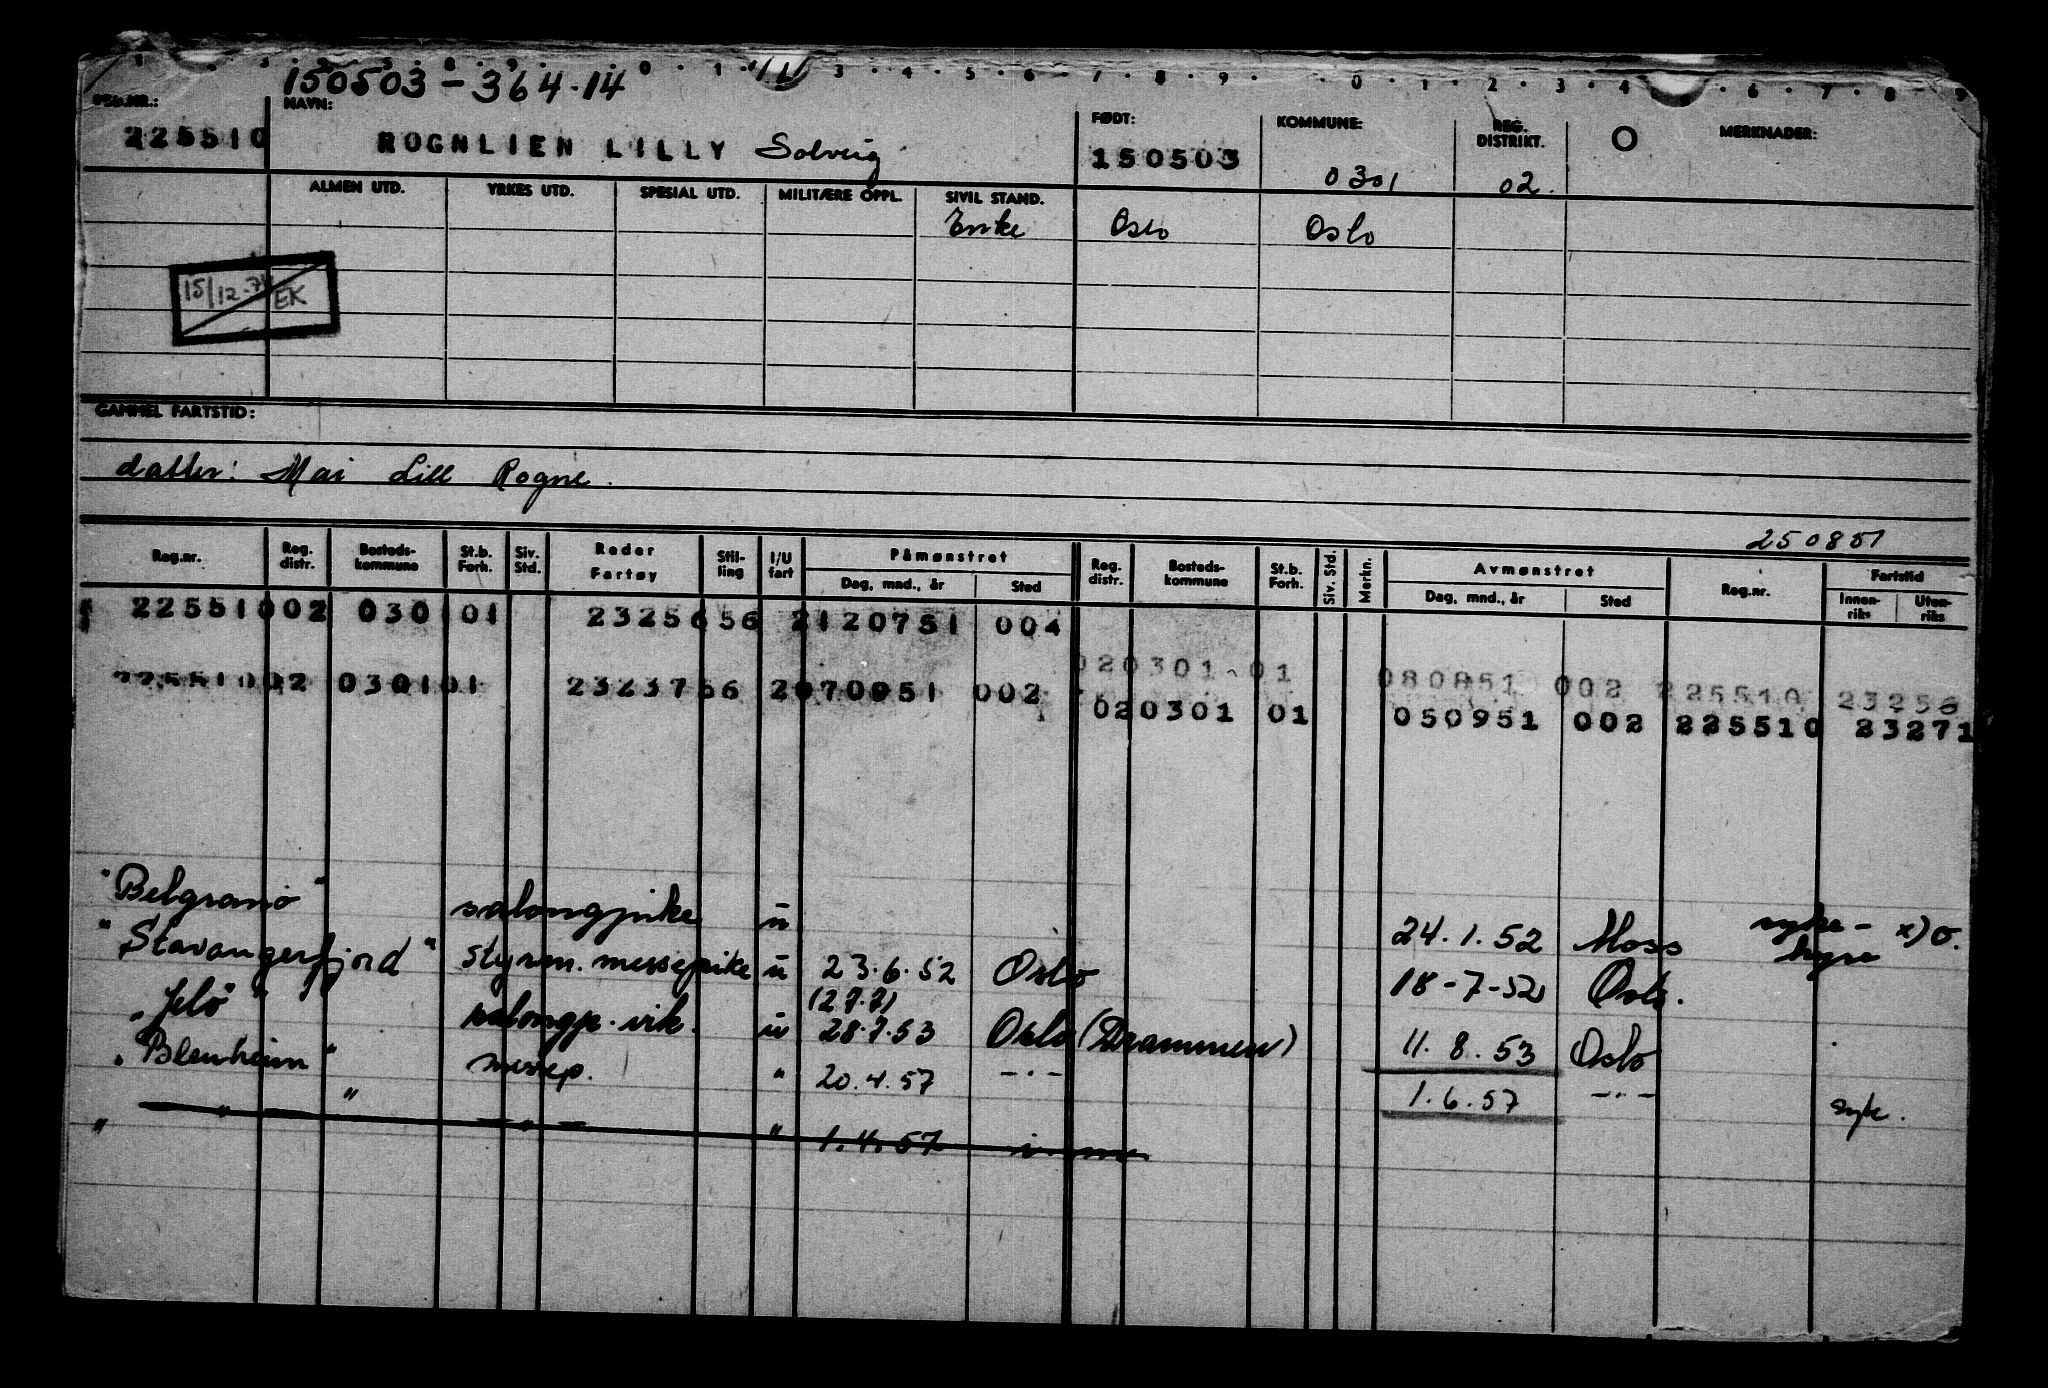 150503-364.14
REG.NR.: NAVN: FØDT: KOMMUNE: REG. DISTRIKT. O MERKNADER:
225510 ROGNLIEN LILLY Solveig 150503 0301 02.
ALMEN UTD. YRKES UTD. SPESIAL UTD. MILITÆRE OPPL. SIVIL STAND.
Enke Oslo Oslo
15/12.7 EK
GAMMEL FARTSTID:
datter: Mai Lill Rogne.
250851
Reg.nr. Reg. distr. Bosteds-kommune St.b. Forh. Siv. Std. Reder Fartøy Stil-ling I/U fart Påmønstret Dag, mnd., år Sted Reg. distr. Bosteds-kommune St.b. Forh. Siv. Std. Merkn. Avmønstret Dag, mnd., år Sted Reg.nr. Fartstid Innen-riks Uten-riks
225510 02 0301 01 23256 56 2 120751 004
020301 01 080851 002 225510 23256
225510 02 0301 01 23237 56 2 070951 002
020301 01 050951 002 225510 23271
"Belgrano" salongpike u 24.1.52 Moss syke- x) o.
hyre
"Stavangerfjord" styrm. messepike u 23.6.52 Oslo 18-7-52 Oslo.
(27.7)
"Jelö" salongp. vik. u 28.7.53 Oslo (Drammen) 11.8.53 Oslo
"Blenheim" messep. " 20.4.57 -"- 1.6.57 -"- syk.
" " " -"- " 1.4.57